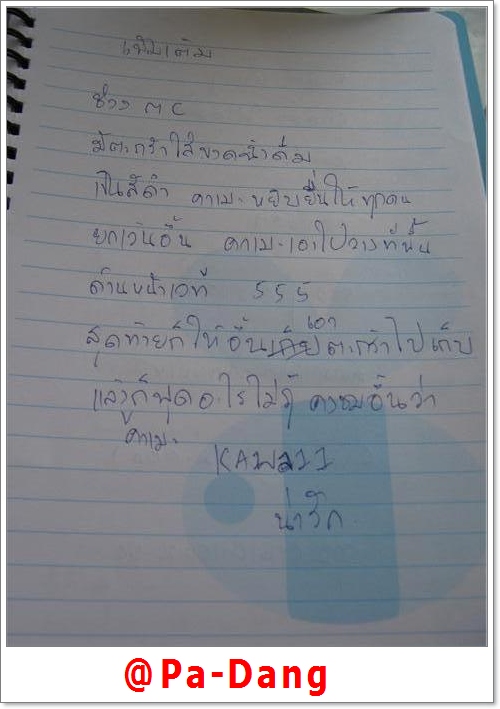 เพิ่มเติม
ช่วง MC
มีตะกร้าใส่ขวดน้ำดื่ม
เป็นสีดำ คาเมะหยิบยื่นให้ทุกคน
ยกเว้นอึ้น คาเมะเอาไปวางที่พื้น
ด้านหน้าเวที 555
สุดท้ายก็ให้อึ้นเอาตะกร้าไปเก็บ
แล้วก็พูดอะไรไม่รู้ คาเมะชมอึ้นว่า
KAWAII
น่ารัก
@Pa-Dang